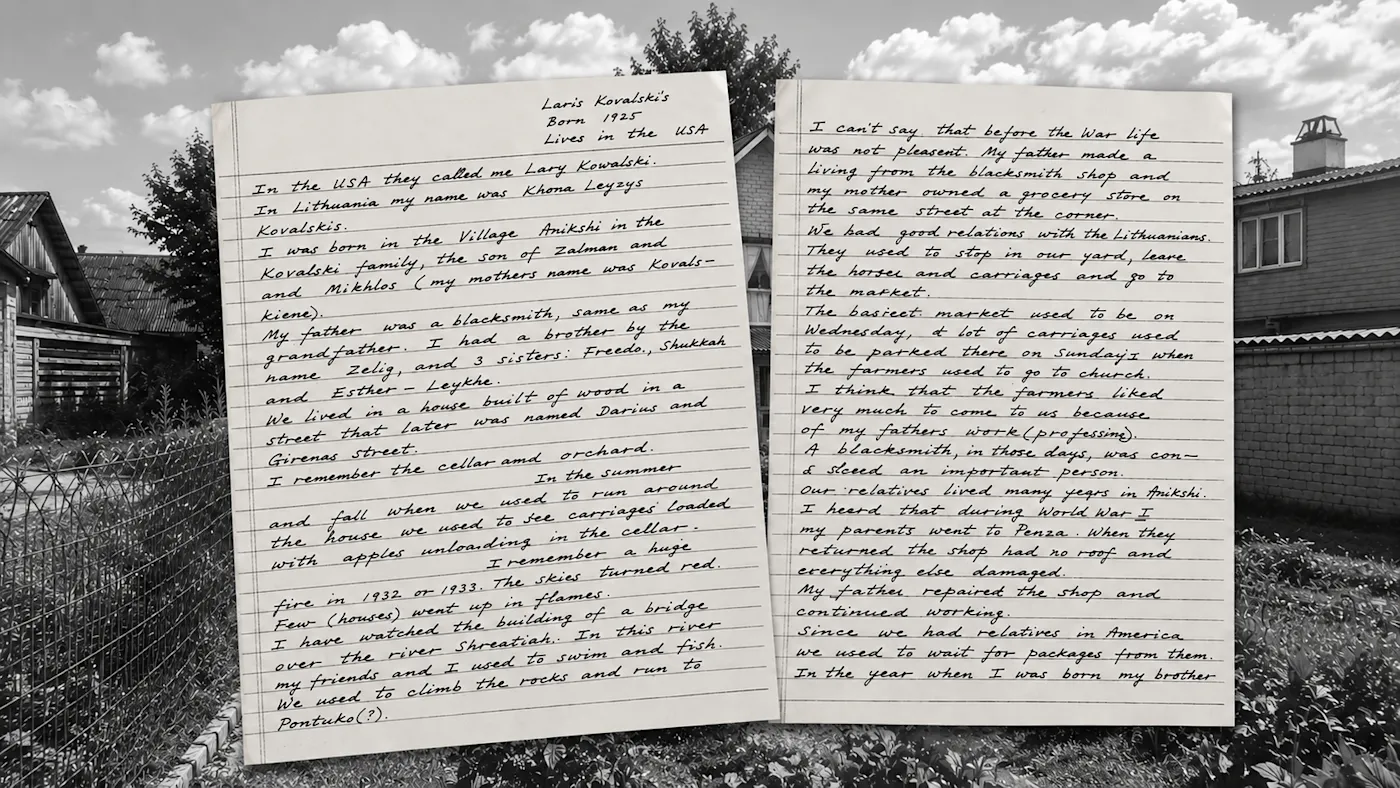 Laris Kovalski's
Born 1925
Lives in the USA
In the USA they called me Lary Kowalski.
In Lithuania my name was Khona Leyzys
Kovalskis.
I was born in the Village Anikshi in the
Kovalski family, the son of Zalman and
and Mikhlos (my mothers name was Kovals-
kiene).
My father was a blacksmith, same as my
grandfather. I had a brother by the
name Zelig, and 3 sisters: Freedo., Shukkah
and Esther - Leykhe.
We lived in a house built of wood in a
street that later was named Darius and
Girenas street.
I remember the cellar amd orchard.
In the summer
and fall when we used to run around
the house we used to see carriages loaded
with apples unloading in the cellar.
I remember a huge
fire in 1932 or 1933. The skies turned red.
Few (houses) went up in flames.
I have watched the building of a bridge
over the river Shreatiah. In this river
my friends and I used to swim and fish.
We used to climb the rocks and run to
Pontuko(?).
I can't say that before the War life
was not pleasent. My father made a
living from the blacksmith shop and
my mother owned a grocery store on
the same street at the corner.
We bad good relations with the Lithuanians.
They used to stop in our yard, leare
the horseu and carriages and go to
the market.
The basieet market used to be on
Wednesday, a lot of carriages used
to be parked there on Sunday's when
the farmers used to go to church.
I think that the farmers liked
very much to come to us because
of my fathers work (professing).
A blacksmith, in those days, was con-
& sleed an important person.
Our relatives lived many yegrs in Anikshi.
I heard that during World War I
my parents went to Penza. When they
returned the shop had no roof and
ererything else damaged.
My father repaired the shop and
continued working.
Since we had relatives in America
we used to wait for packages from them.
In the year when I was born my brother